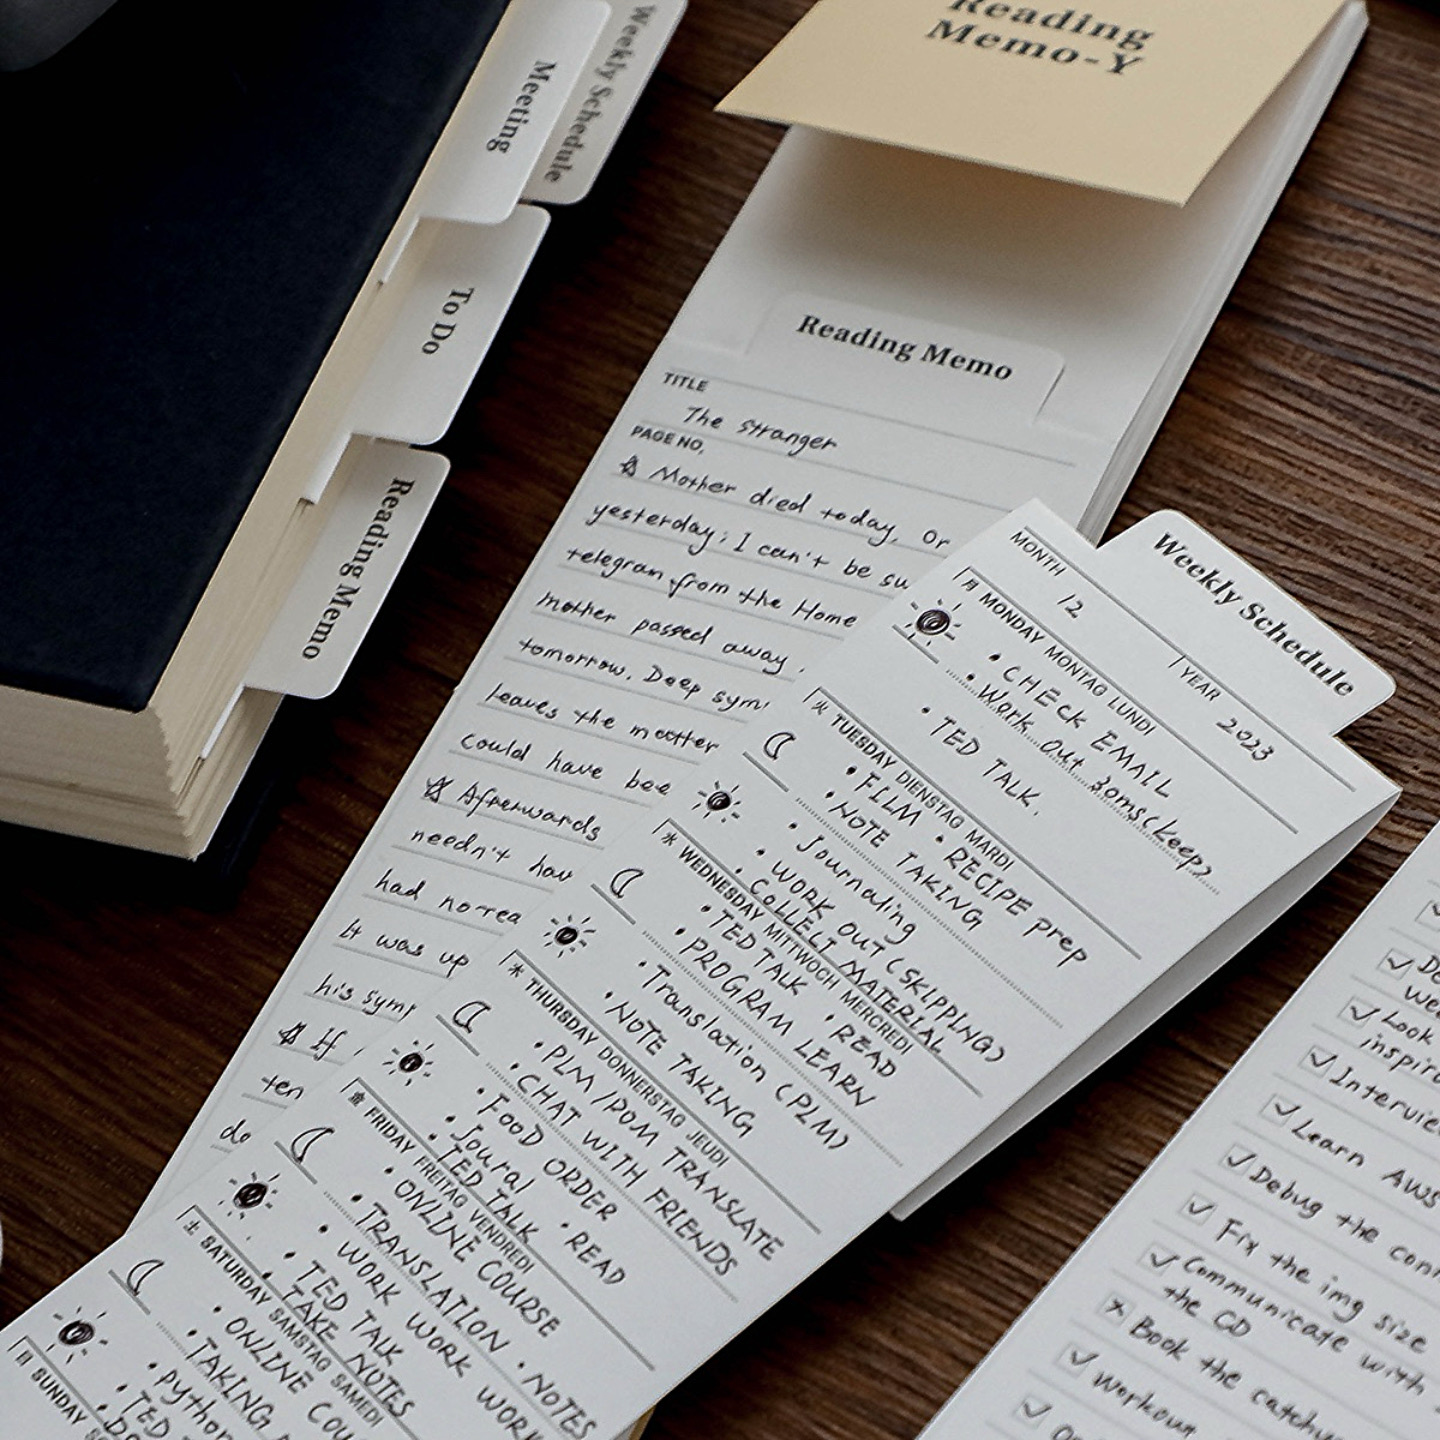 Weekly Schedule
Meeting
To Do
Reading Memo
Reading
Memo-Y
Reading Memo
TITLE
The Stranger
PAGE NO.
☆ Mother died today. Or
yesterday; I can't be su
telegram from the Home
mother passed away.
tomorrow. Deep sym
leaves the matter
could have bee
☆ Afterwards
needn't hav
had no rea
It was up
his symp
☆ If
ten
do
Weekly Schedule
MONTH 12 YEAR 2023
月 MONDAY MONTAG LUNDI
• CHECK EMAIL
• Work out 30ms(keep)
• TED TALK.
火 TUESDAY DIENSTAG MARDI
• FILM • RECIPE prep
• NOTE TAKING
• Journaling
• WORK OUT (SKIPPING)
• COLLECT MATERIAL
水 WEDNESDAY MITTWOCH MERCREDI
• TED TALK • READ
• PROGRAM LEARN
• Translation (PLM)
• NOTE TAKING
木 THURSDAY DONNERSTAG JEUDI
• PLM/POM TRANSLATE
• CHAT WITH FRIENDS
• FOOD ORDER
• Joural • READ
• TED TALK
金 FRIDAY FREITAG VENDREDI
• ONLINE COURSE
• TRANSLATION • NOTES
• WORK WORK WORK
• TED TALK
• TAKE NOTES
土 SATURDAY SAMSTAG SAMEDI
• ONLINE COU
• TAKING
• Python
• TED
日 SUNDAY
We
Look
inspira
Intervie
Learn AWS
Debug the con
Fix the img size
Communicate with
the CD
Book the catchu
Workou